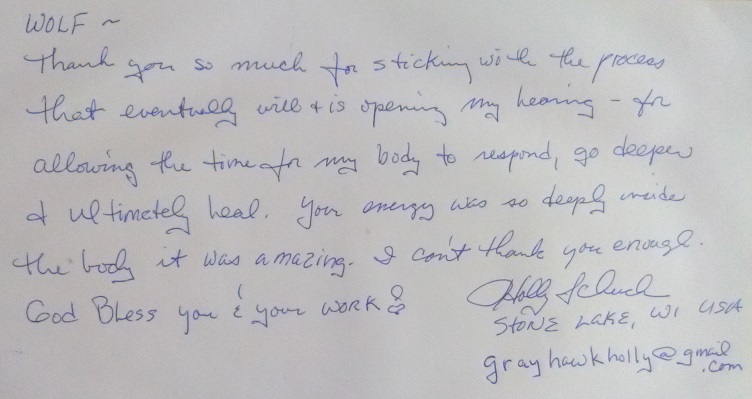 WOLF ~
Thank you so much for sticking with the process
that eventually will + is opening my hearing - for
allowing the time for my body to respond, go deeper
& ultimately heal. Your energy was so deeply inside
the body it was amazing. I can't thank you enough.
God Bless you & your work
Holly
Stone Lake, WI USA
grayhawkholly@gmail
.com